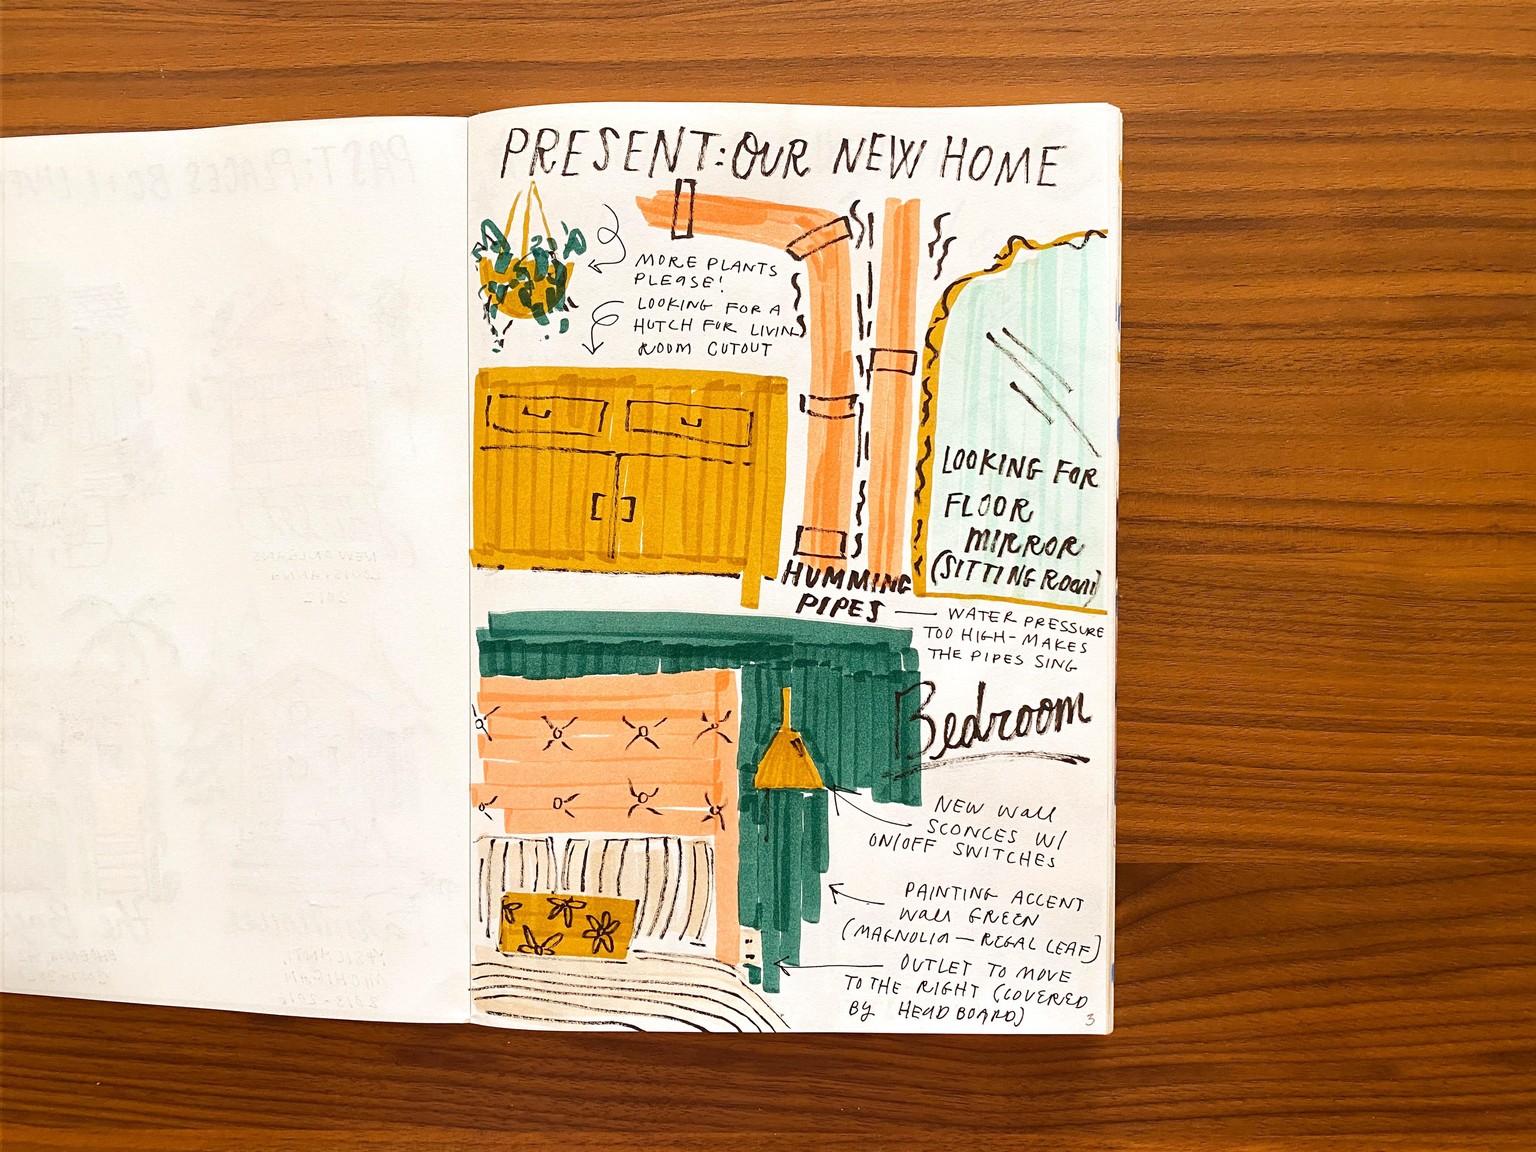 PRESENT: OUR NEW HOME
MORE PLANTS
PLEASE!
LOOKING FOR A
HUTCH FOR LIVING
ROOM CUTOUT
LOOKING FOR
FLOOR
MIRROR
(SITTING ROOM)
HUMMING
PIPES
WATER PRESSURE
TOO HIGH - MAKES
THE PIPES SING
Bedroom
NEW WALL
SCONCES W/
ON/OFF SWITCHES
PAINTING ACCENT
WALL GREEN
(MAGNOLIA - REGAL LEAF)
OUTLET TO MOVE
TO THE RIGHT (COVERED
BY HEADBOARD)
3